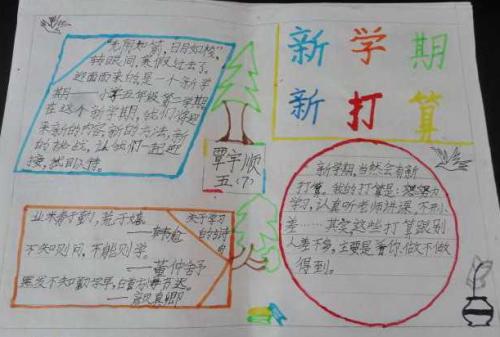 新学期
新打算
"光阴似箭，日月如梭"，
转眼间，寒假过去了，
迎面而来的是一个新学
期——小学五年级第二学期
在这个新学期，他们将迎
来新的内容，新的方法，新
的挑战，让他们一起迎
接，拭目以待。
覃宇顺
五(7)
新学期，当然会有新
打算。我的打算是：要努力
学习，认真听老师讲课，不开小
差……其实这些打算跟别
人差不多，主要是看你做不做
得到。
关于学习
的名诗句
业精于勤，荒于嬉。
——韩愈
不知则问，不能则学。
——董仲舒
黑发不知勤学早，白首方悔读书迟。
——颜真卿